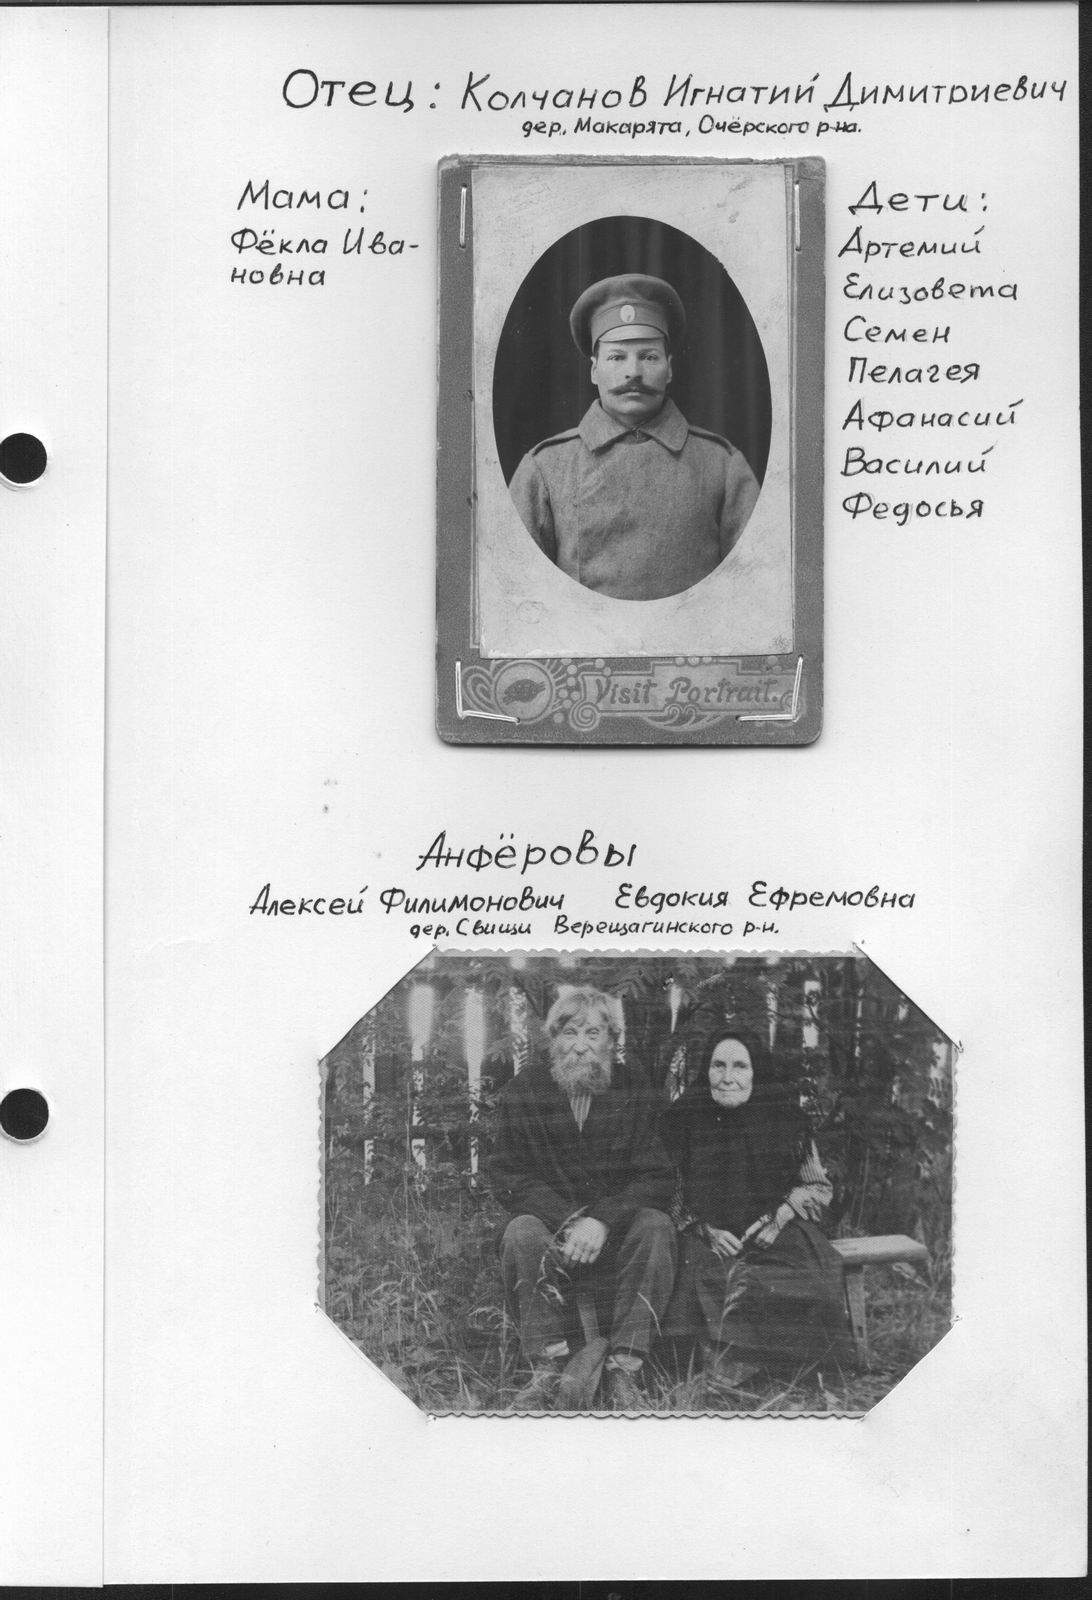 Отец: Колчанов Игнатий Димитриевич
дер. Макарята, Очёрского р-на.
Мама:
Фёкла Ива-
новна
Дети:
Артемий
Елизовета
Семен
Пелагея
Афанасий
Василий
Федосья
Visit Portrait.
Анфёровы
Алексей Филимонович Евдокия Ефремовна
дер. Свищи Верещагинского р-н.